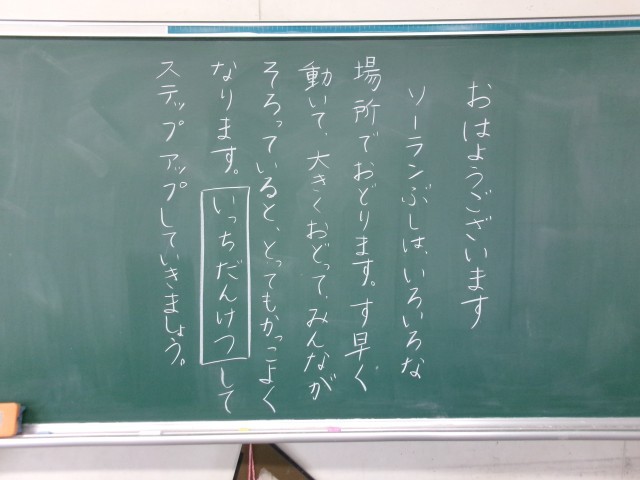 おはようございます
ソーランぶしは、いろいろな
場所でおどります。す早く
動いて、大きくおどって、みんなが
そろっていると、とってもかっこよく
なります。いっちだんけつして
ステップアップしていきましょう。